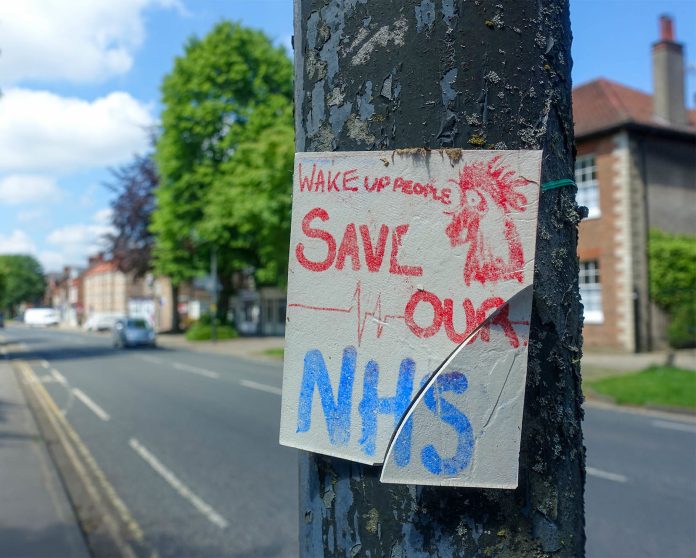 WAKE UP PEOPLE
SAVE
OUR
NHS